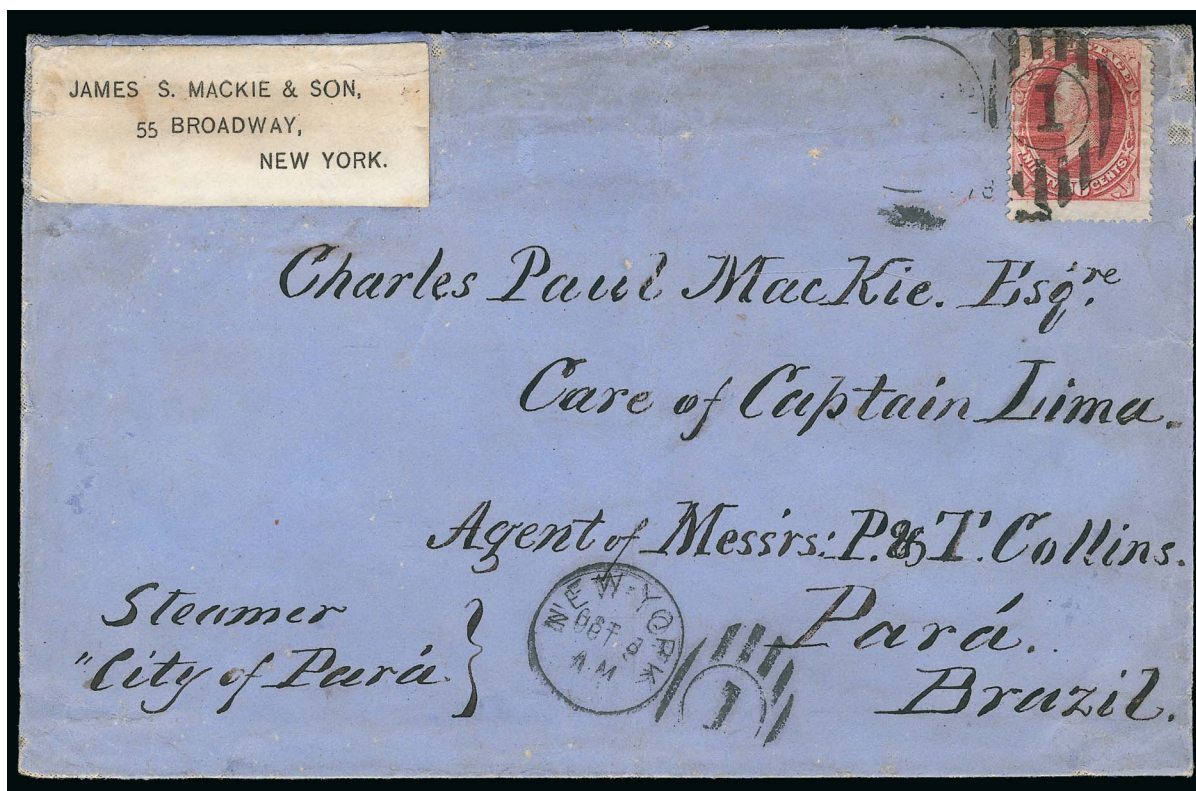 JAMES S. MACKIE & SON,
55 BROADWAY,
NEW YORK.
1
CENTS
78
Charles Paul MacKie. Esqʳᵉ.
Care of Captain Lima.
Agent of Messrs: P. & T. Collins.
Pará.
Brazil.
Steamer
"City of Pará
NEW-YORK
OCT
A.M
1